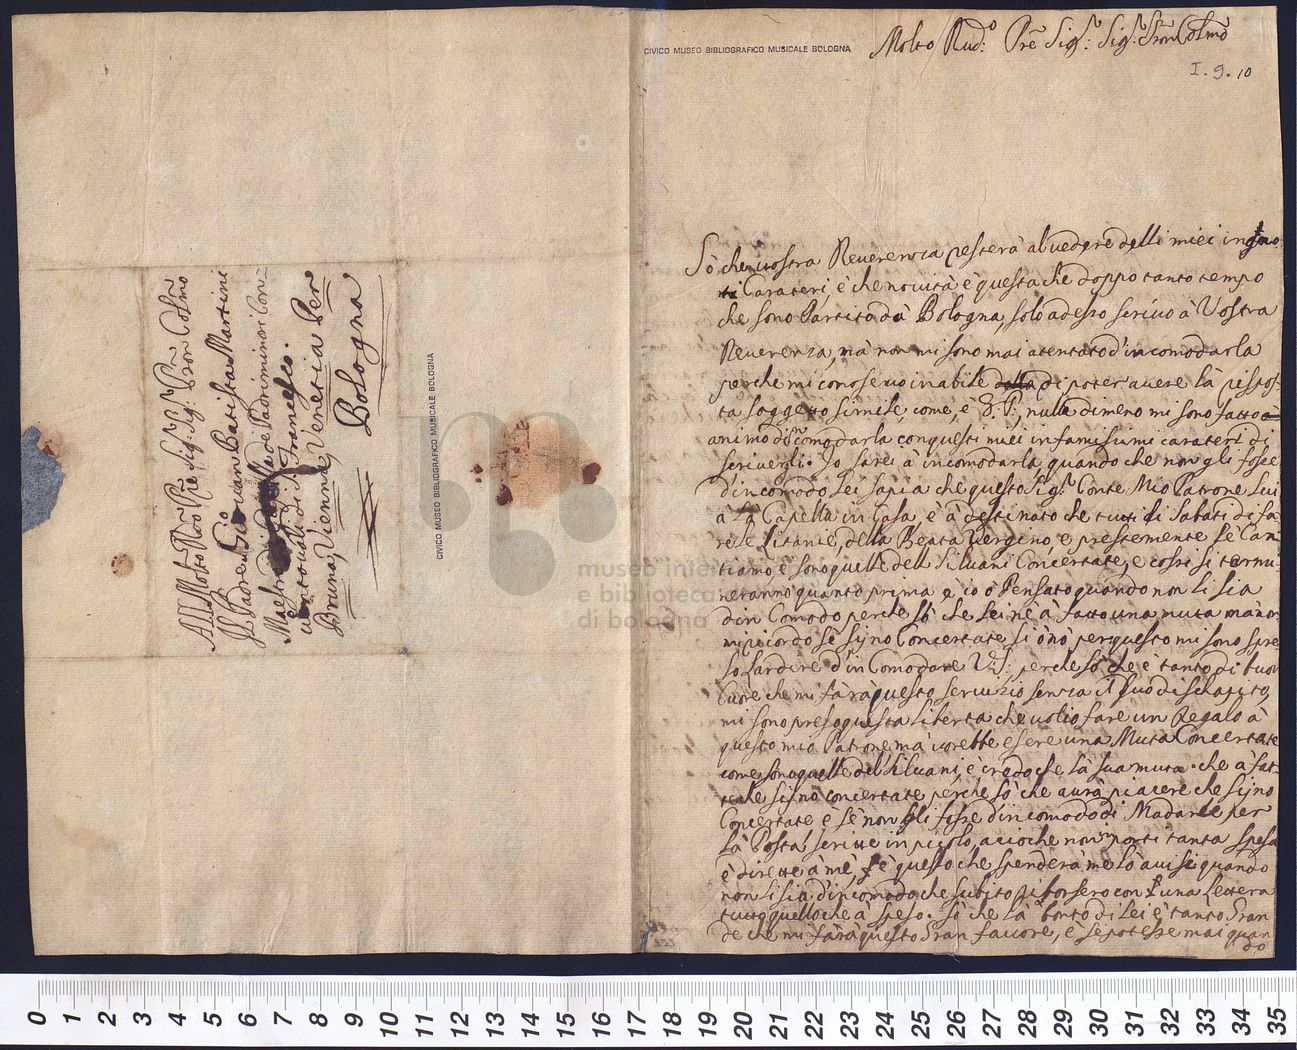 CIVICO MUSEO BIBLIOGRAFICO MUSICALE BOLOGNA
Molto Rud.o Pre Sig.r Sig.r Pron Colmo
I. 9. 10
Sò che vostra Reverenza resterà al vedere delli miei in
Carateri è che novità è questa che doppo tanto tempo
che sono Partito dà Bologna, solo adesso scrivo à Vostra
Reverenza, mà non mi sono mai atentato d'incomodarla
perche mi conoscevo inabile di poter avere là rispos-
ta soggetto simile, come, è V: P:, nulla dimeno mi sono fatto
animo di incomodarla con questi miei infamissimi carateri di
scrivergli. Io sarei à incomodarla, quando che non gli fosse
d'incomodo Lei sapia che questo Sig.r Conte Mio Patrone Lui
à La Capella in Casa è à destinato che tutti li Sabati di fa
re le Litanie, della Beata Vergine, e presstemente le Can
tiamo è sono quelle del Siluani Concertate, e cossi si termi
neranno quanto prima è io ò Pensato quando non li sia
d'in Comodo perche sò che Lei ne à fatto una muta mà non
mi ricordo se sijno Concertate si ò nò per questo mi sono pre
so L'ardire d'in Comodare V. P:, perche sò che è tanto di buon
Cuore che mi farà questo servizio senza il suo dischapito,
mi sono preso questa liberta che volio fare un Regalo à
questo mio Patrone mà vorebbe essere una Muta Concertate
come sono quelle del Siluani, è credo che là sua muta che à fat-
to che sijno concertate perche sò che avrà piacere che sijno
Concertate è sè non gli fosse d'incomodo di Madarle per
là Posta scrive in picolo, acioche non inporti tanta spesa
è dirette à mè, è questo che spenderà me lò avisi quando
non li sia d'incomodo che subito riborsero con una Lettera
tutto quello che à speso. Sò che là bontà di Lei è tanto Gran
de che mi farà questo Gran favore, è se potesse mai quan
do
All Molto Rdo Pre Sig.r Sig.r Pron Colmo
Il Padre Giovan Batista Martini
Maestro di Capella de Padri minori Con-
uentouali di S. Francesco.
Bruna, Vienna, Venetia Per
Bologna
CIVICO MUSEO BIBLIOGRAFICO MUSICALE BOLOGNA
museo inter
e biblioteca
di bologna
0 1 2 3 4 5 6 7 8 9 10 11 12 13 14 15 16 17 18 19 20 21 22 23 24 25 26 27 28 29 30 31 32 33 34 35